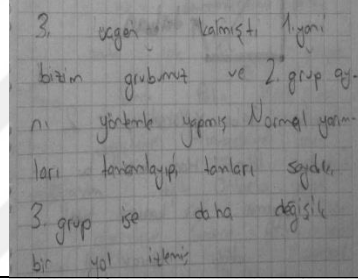 3. üçgen kalmıştı 1. yani
bizim grubumuz ve 2. grup ay-
nı yöntemle yapmış Normal yarım-
ları tamamlayıp, tamları saydık,
3. grup ise daha değişik
bir yol izlemiş